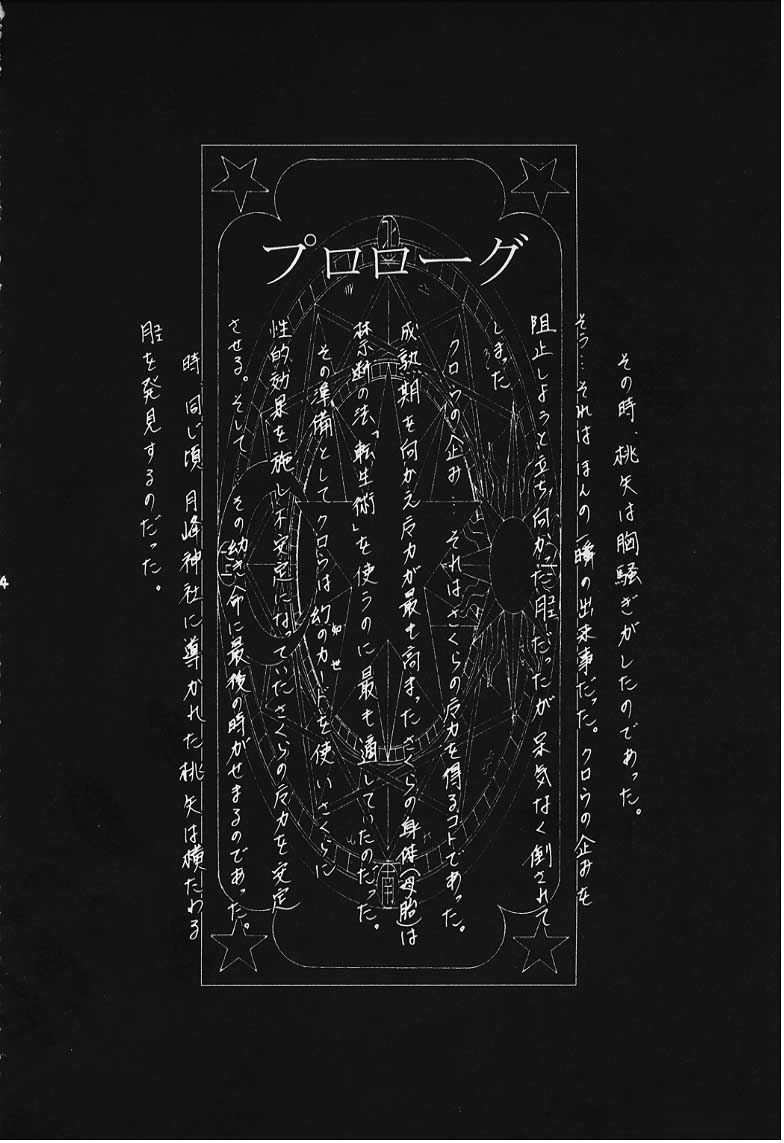 プロローグ
その時、桃矢は胸騒ぎがしたのであった。
そう…それはほんの一瞬の出来事だった。クロウの企みを
阻止しようと立ち向かった雪兎だったが呆気なく倒されて
しまった
クロウの企み…それはさくらの魔力を得るコトであった。
成熟期を向かえ魔力が最も高まったさくらの身体(母胎)は
禁断の法「転生術」を使うのに最も適していたのだった。
その準備としてクロウは幻のカードを使いさくらに
性的効果を施し不安定になっていたさくらの魔力を安定
させる。そして…その幼き命に最後の時がせまるのであった。
時、同じ頃 月峰神社に導かれた桃矢は横たわる
を発見するのだった。
4